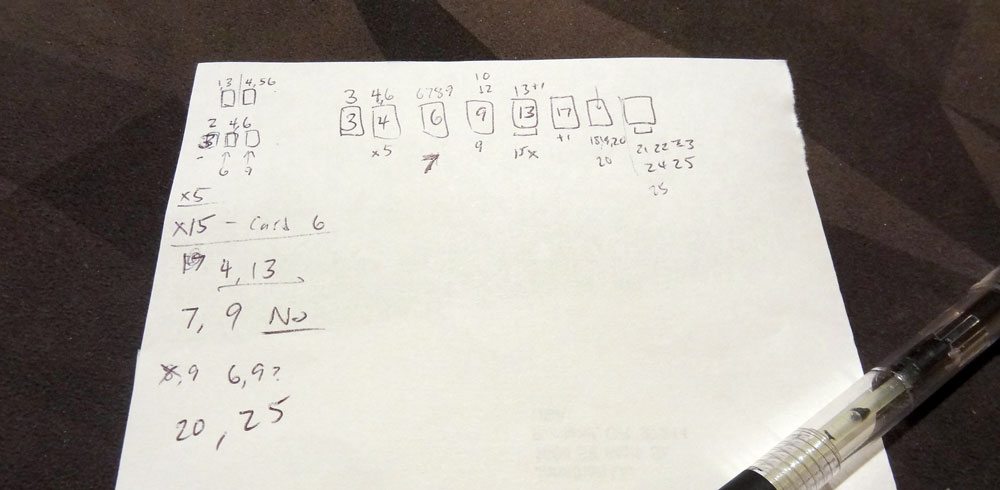 1,3 4,56
2 4,6
6 9
x5
x15 - Card 6
4,13
7, 9 No
8,9 6,9?
20, 25
10
3 4,6 6789 12 13+1
3 4 6 9 13 17
x5 7 9 15x +1 20 21 22 23
24 25
25